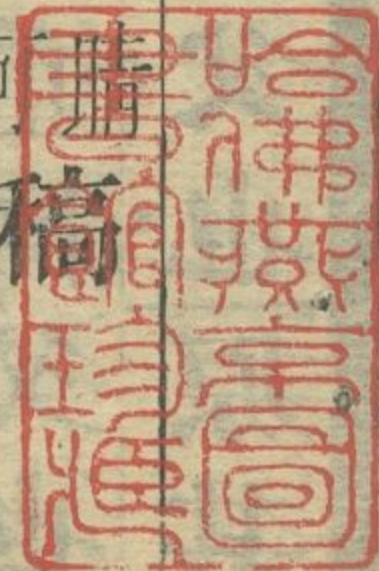 哈佛燕京圖
書館珍藏
稿